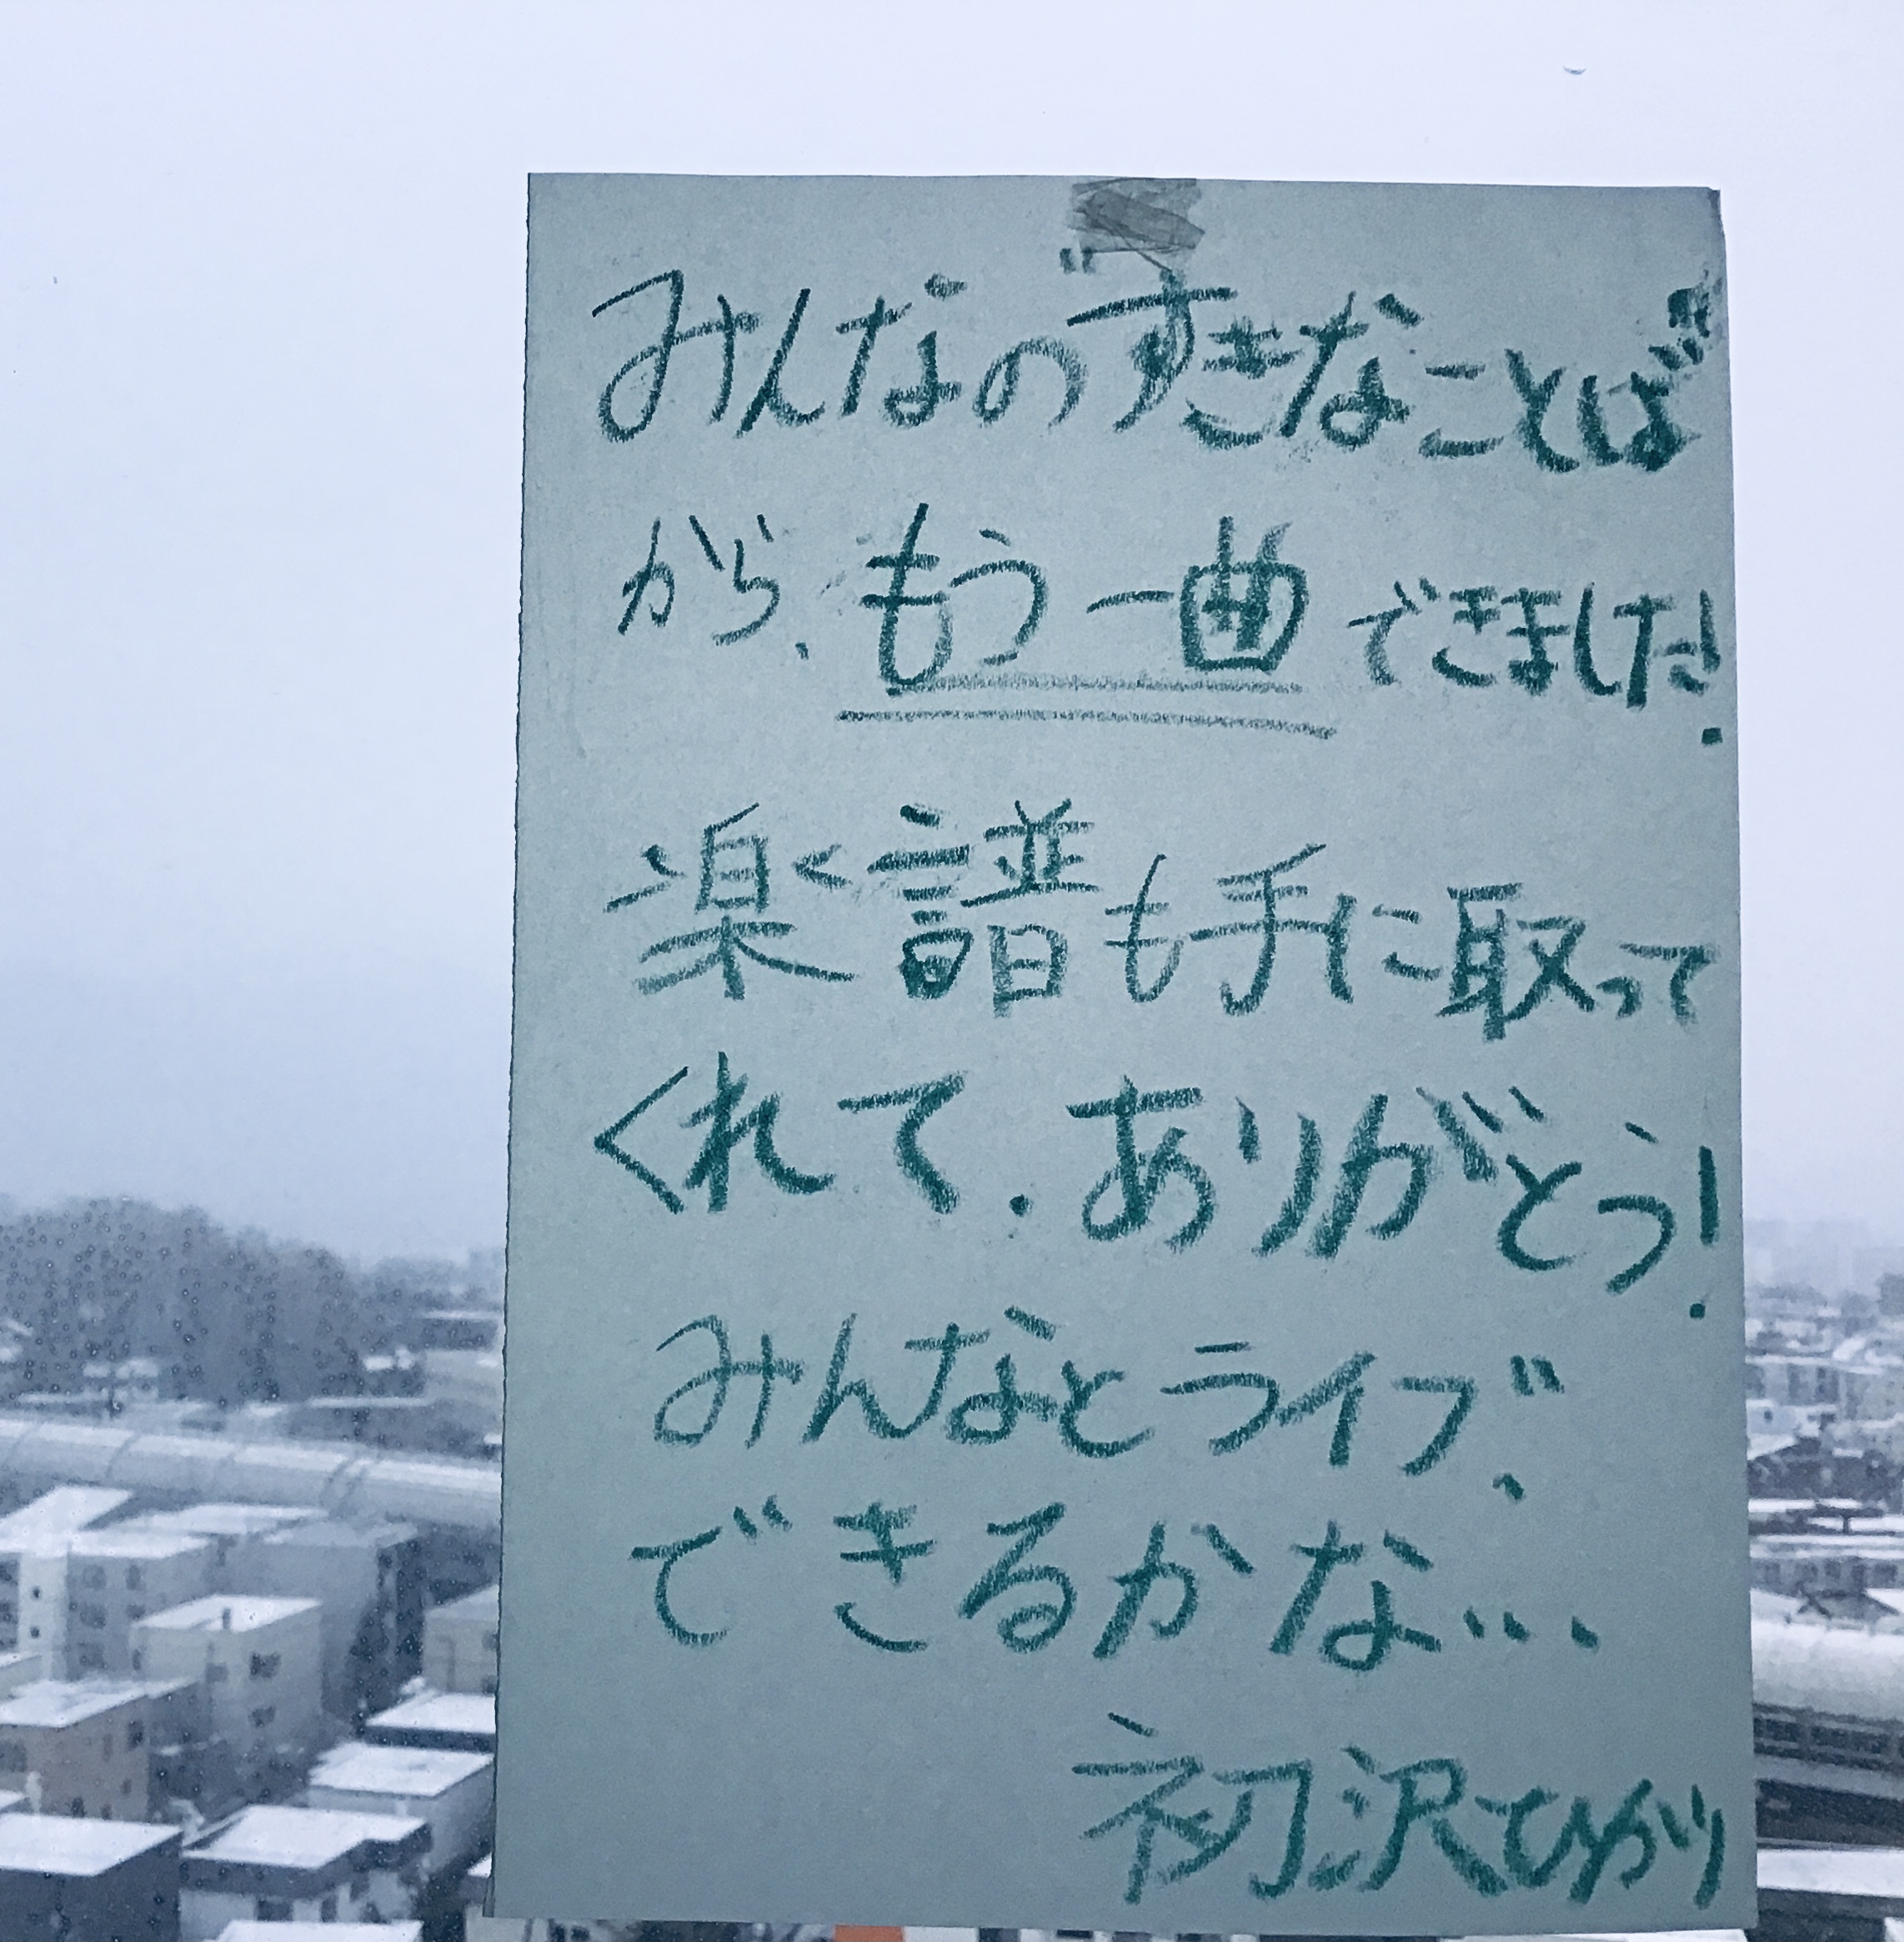 みんなの"すきなことば"
から、もう一曲できました!
楽譜も手に取って
くれて、ありがとう!
みんなとライブ、
できるかな…
初沢ひかり